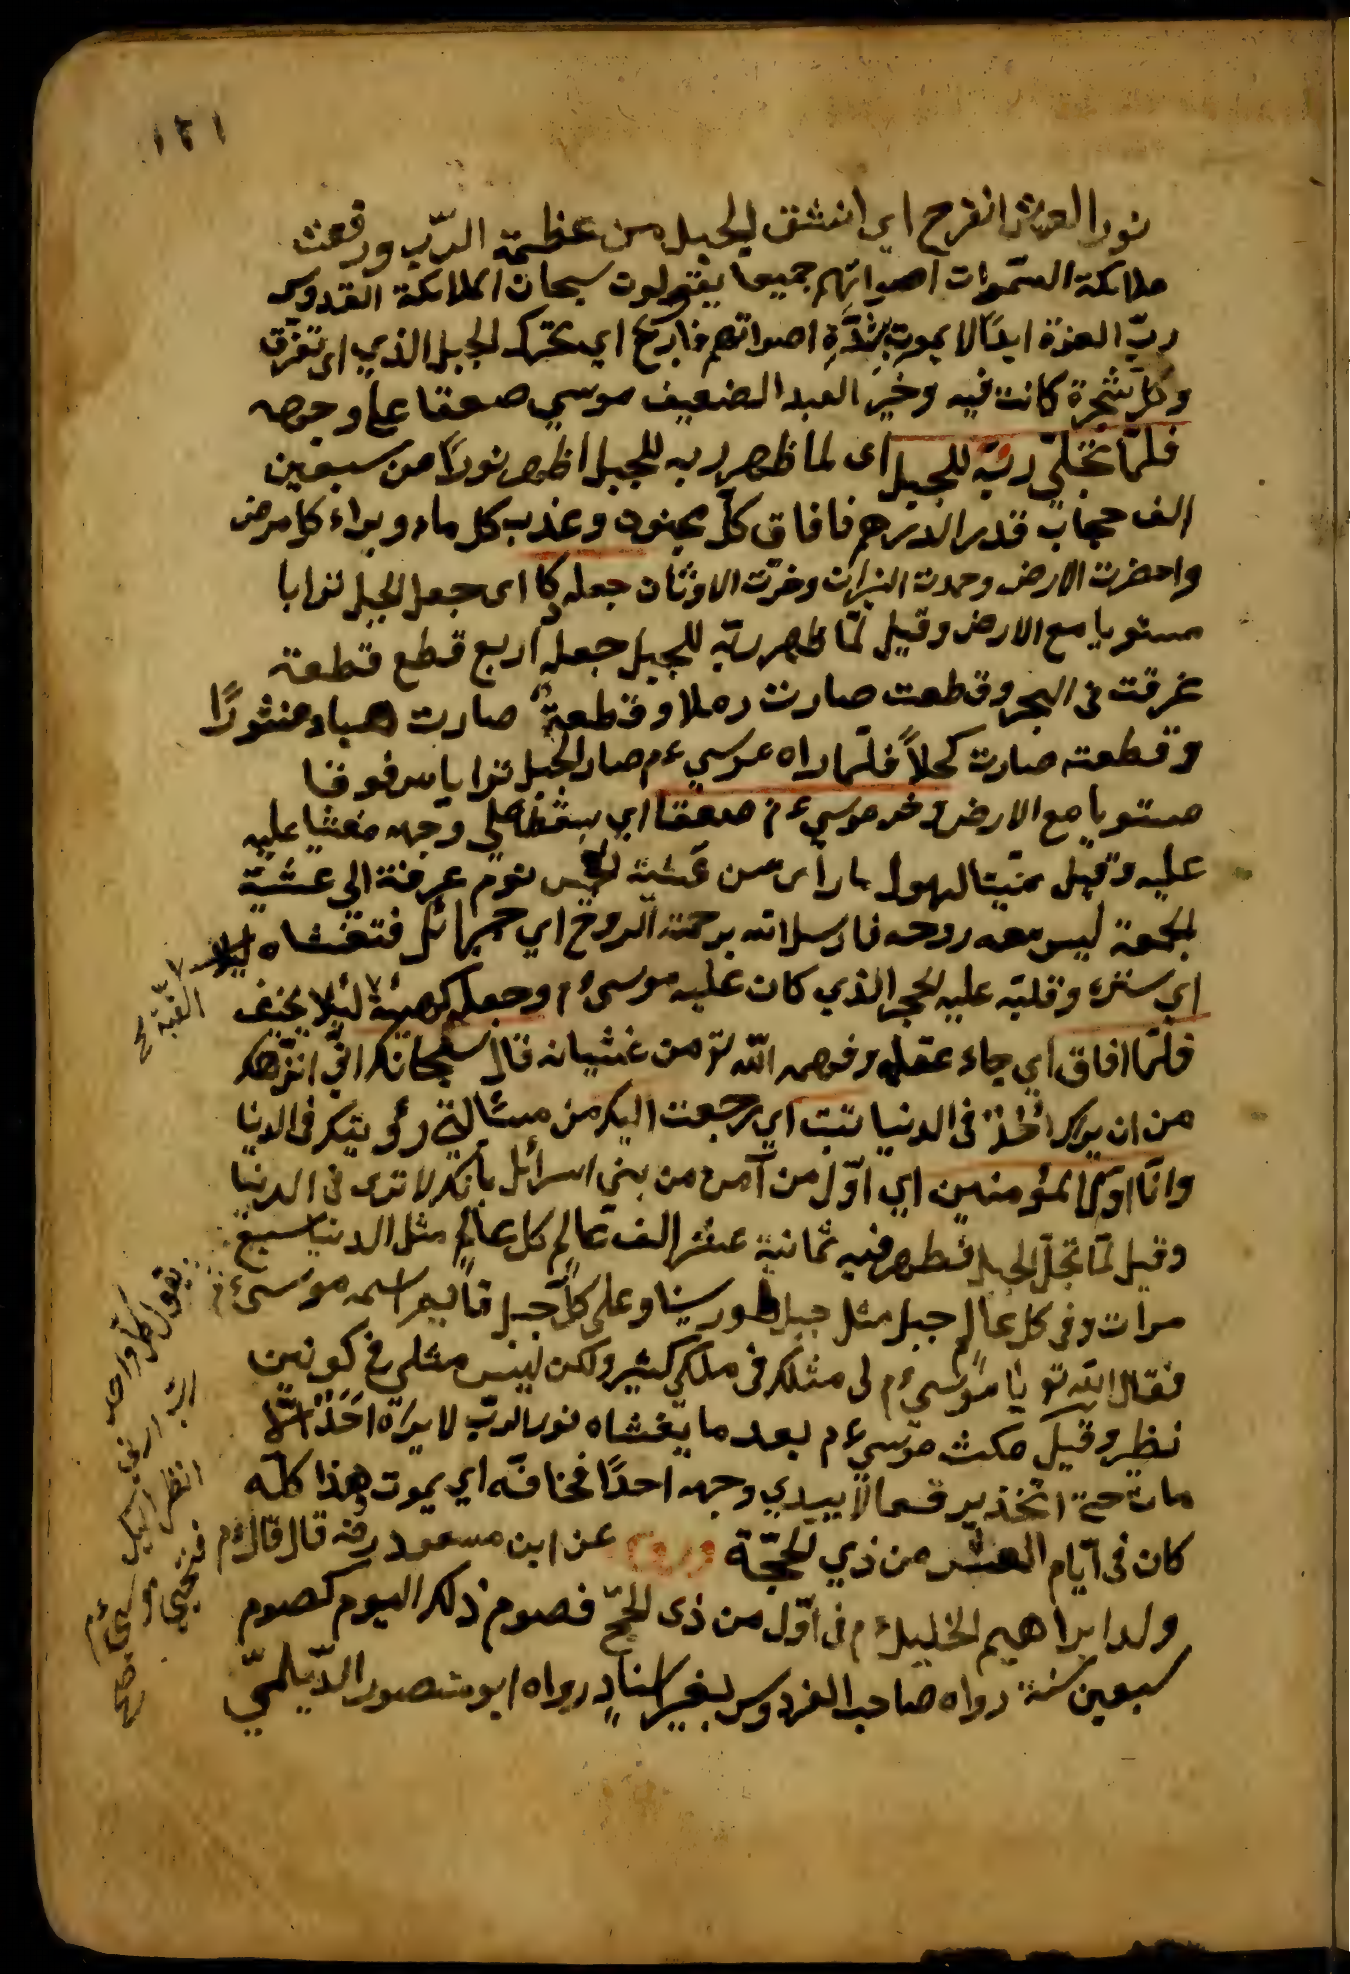 ١٢١
نور العرش انفرج اي انشق الجبل من عظمة الربّ ورفعت
ملائكة السّموات اصواتهم جميعا يقولون سبحان الملائكة القدوس
ربّ العزة ابدًا لا يموت بشدّة اصواتهم فارتج اي تحرك الجبل الذي اى تفرق
وكلّ شجرة كانت فيه وخرّ العبد الضعيف موسي صعقا على وجهه
فلمّا تجلّي ربّه للجبل اى لما ظهر ربه للجبل اظهر نورًا من سبعين
الف حجاب قدر الدرهم فافاق كلّ مجنون وعذب كل ماء وبراء كل مرض
واحضرت الارض وحمدت النيران وخرّت الاوثان جعله دكا اى جعل الجبل ترابا
مستويا مع الارض وقيل لمّا ظهر ربّه للجبل جعله اربع قطع قطعة
غرقت فى البحر وقطعت صارت رملا وقطعة صارت هباء منثورًا
وقطعته صارت كحلاً فلمّا راه موسي ءم صار الجبل ترابا
مستويا مع الارض وخر موسي ءم صعقا اي سقط على وجهه مغشيا عليه
عليه وقيل ميّتا لهول ما رأى من عشيّة الخميس نوم عرفة الى عشيّة
الجمعة ليس معه روحه فارسل الله برحمته الروح اي جبرائل فتغشاه
اي ستره وقلبّه عليه الحجر الذي كان عليه موسى ءم وجعله كهيئة لئلا يخيف
القبّة صح
فلمّا افاق اي جاء عقله وفهمه الله تو من غشيانه قال سبحانك انّي انزّهك
من ان يراك احد فى الدنيا تبت اي رجعت اليك من مسئالتي رؤيتك فى الدنيا
وانا اوّل المؤمنين اي اوّل من آمن من بني اسرائل بانك لا ترى فى الدنيا
وقيل لمّا تجلّ الجبل فظهر فيه ثمانية عشر الف عالم كل عالم مثل الدنيا سبع
مرات وفى كل عالم جبل مثل جبل طور سينا وعلى كلّ جبل قايم اسمه موسى ءم
يقول كلّ واحد
ربّ ارنى
انظر اليك
فتحيّر موسى ءم صح
فقال الله تو يا موسي ءم لى مثلك فى ملكي كثير ولكن ليس مثلي فى كونين
نظير وقيل مكث موسي ءم بعد ما يغشاه نور الربّ لا يراه احد الّا
مات حتى اتخذ برقعا لا يبدي وجهه احدًا مخافة اي يموت وهذا كلّه
كان فى ايّام العشر من ذي الحجّة عن ابن مسعود رضه قال قال ءم
ولد ابراهيم الخليل ءم فى اوّل من ذى الحجّ فصوم ذلك اليوم كصوم
سبعين سنة رواه صاحب الفردوس بغير اسناد رواه ابو منصور الدّيلميّ